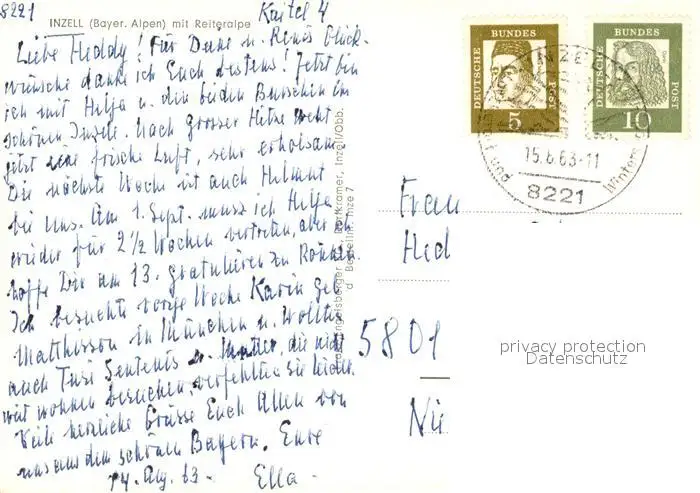 8221
INZELL (Bayer. Alpen) mit Reiteralpe
Kaitel 4
Liebe Heddy! Für Deine u. Renis Glück-
wünsche danke ich Euch bestens! Jetzt bin
ich mit Helja u. den beiden Burschen im
schönen Inzell. Nach grosser Hitze weht
jetzt eine frische Luft, sehr erholsam.
Die nächste Woche ist auch Helmut
bei uns. Am 1. Sept. muss ich Helja
wieder für 2½ Wochen vertreten, aber ich
hoffe Dir am 13. gratulieren zu können.
Ich besuchte vorige Woche Karin geb.
Matthisson in München u. wollte
auch Tusi u. Mutter, die nicht
weit wohnen besuchen, verfehlte sie leider.
Viele herzliche Grüsse Euch Allen von
uns aus dem schönen Bayern. Eure
14. Aug. 63. Ella.
DEUTSCHE BUNDESPOST
5
DEUTSCHE BUNDESPOST
10
INZELL
15.8.63-11
und Winters
8221
Frau
Hed
5801
Ni
privacy protection
Datenschutz